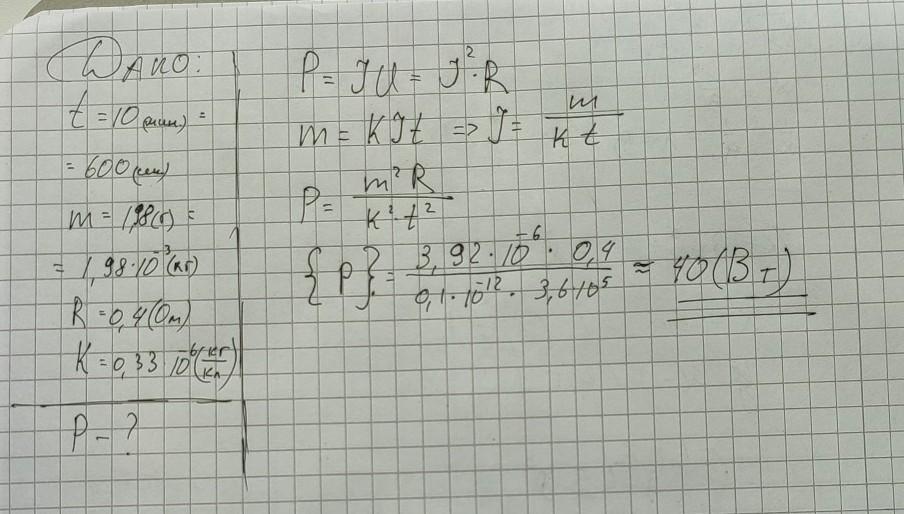 Дано:
t = 10 (мин) =
= 600 (сек)
m = 1,98 (г) =
= 1,98·10⁻³ (кг)
R = 0,4 (Ом)
K = 0,33·10⁻⁶ (кг/кл)
P – ?
P = JU = J²·R
m = KJt => J = m/(K t)
P = m² R/(K²·t²)
{P} = 3,92·10⁻⁶·0,4/(0,1·10⁻¹²·3,6·10⁵) ≈ 40 (Вт)